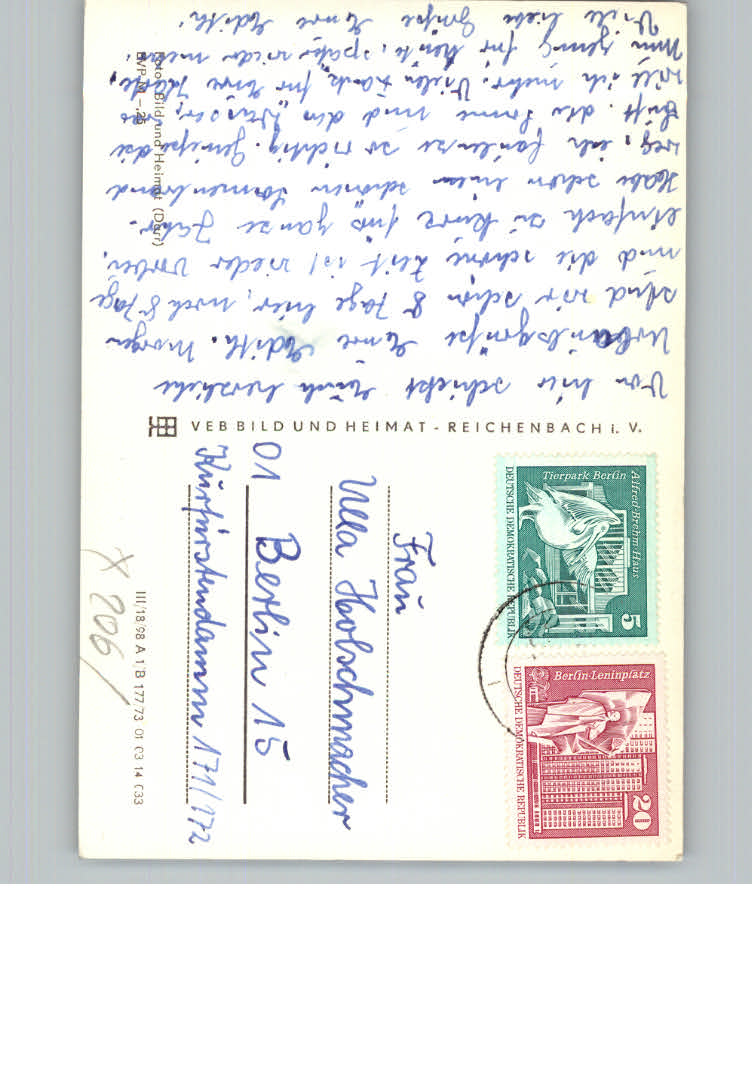 Von hier schickt Euch herzliche
Urlaubsgrüße Eure Edith. Morgen
sind wir schon 8 Tage hier, noch 8 Tage
und die schöne Zeit ist wieder vorbei,
einfach zu kurz für's ganze Jahr.
Habe schon einen schönen Sonnenbrand
weg, ich faulenze so richtig. Genieße die
Luft, die Sonne und das Wasser, was
will ich mehr. Vielen Dank für Eure Karte,
Nun genug für heute, später wieder mehr.
Viele liebe Grüße Eure Edith.
Foto: Bild und Heimat (Darr)
VEB BILD UND HEIMAT - REICHENBACH i. V.
Alfred-Brehm-Haus
Tierpark Berlin
5
DEUTSCHE DEMOKRATISCHE REPUBLIK
Berlin-Leninplatz
20
DEUTSCHE DEMOKRATISCHE REPUBLIK
Frau
Ulla Holschmacher
01 Berlin 15
Kurfürstendamm 171/172
III/18/98 A 1/B 177/73 01 03 14 033
x 206/